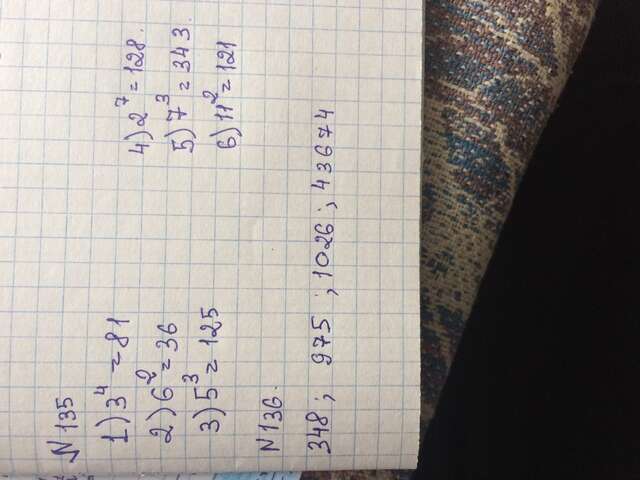 N 135
1) 3⁴ = 81
2) 6² = 36
3) 5³ = 125
4) 2⁷ = 128.
5) 7³ = 343.
6) 11² = 121
N 136.
348; 975; 1026; 43674